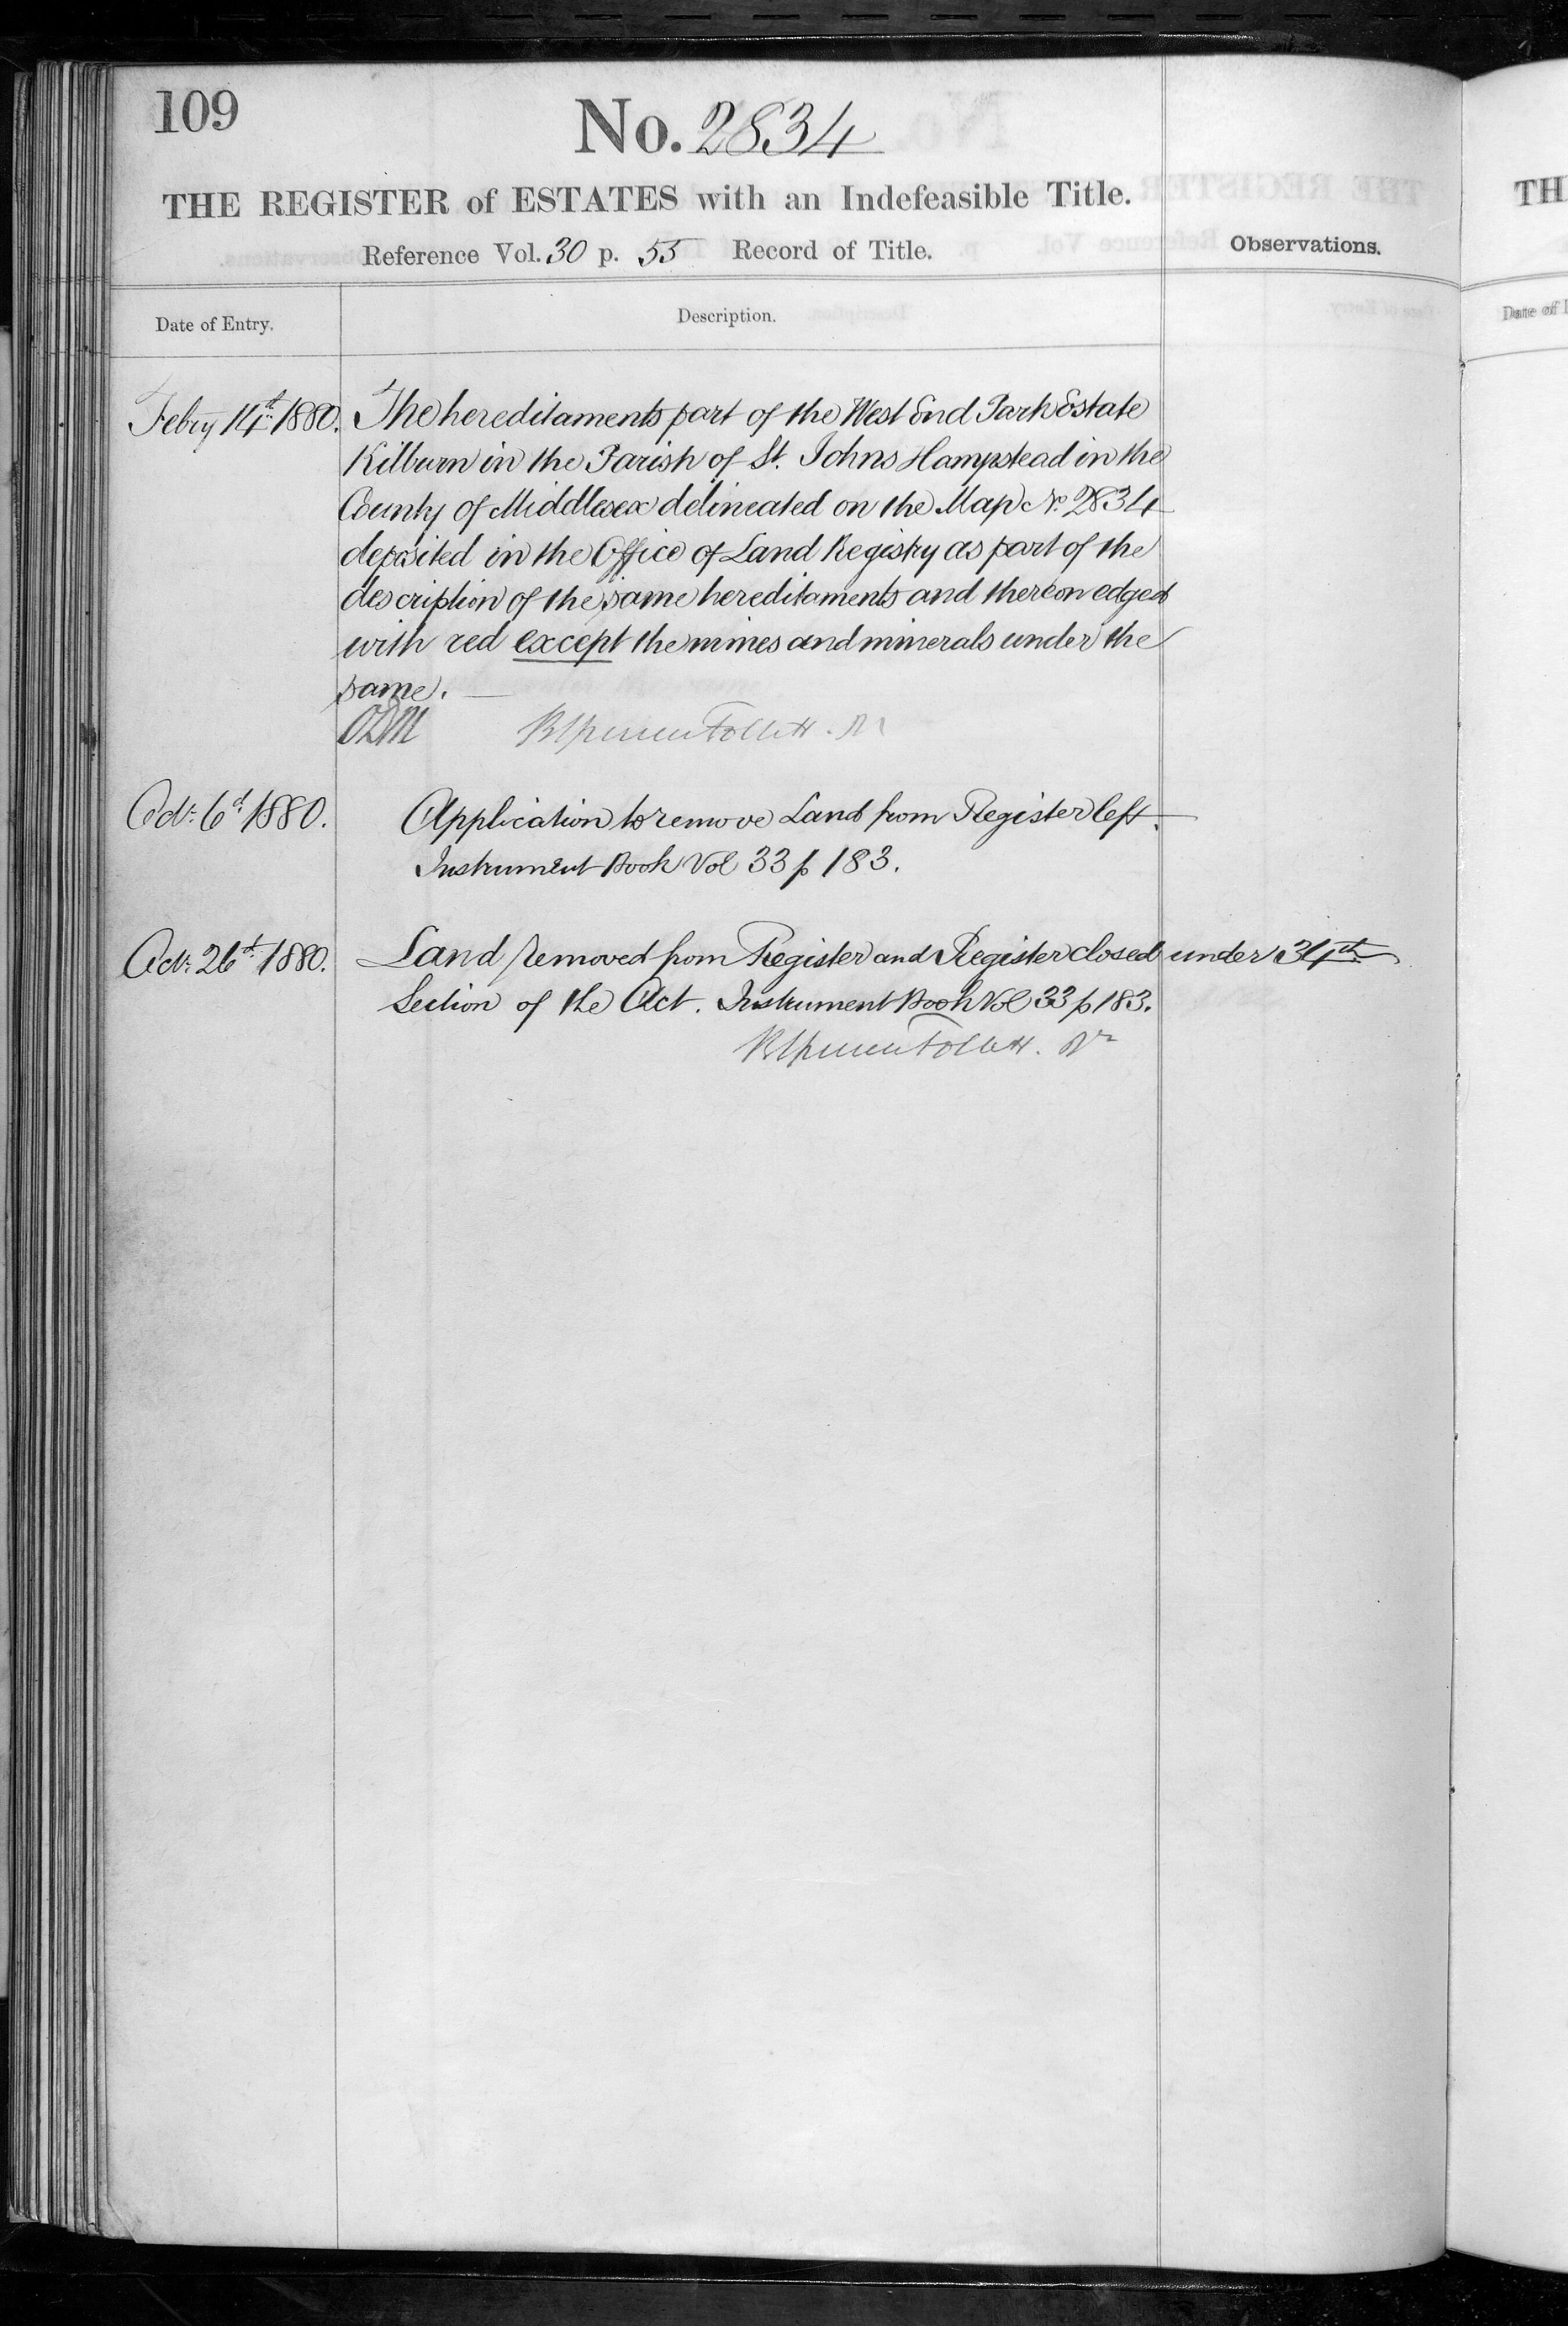 109
No. 2834
THE REGISTER of ESTATES with an Indefeasible Title.
Reference Vol. 30 p. 55 Record of Title.
Observations.
Date of Entry.
Description.
Febry 14th 1880.
The hereditaments part of the West End Park Estate
Kilburn in the Parish of St. Johns Hampstead in the
County of Middlesex delineated on the Map No 2834
deposited in the Office of Land Registry as part of the
description of the same hereditaments and thereon edged
with red except the mines and minerals under the
same.
Follett.
Oct: 6th 1880.
Application to remove Land from Register left.
Instrument Book Vol 33 p 183.
Oct: 26th 1880.
Land removed from Register and Register closed under 34th
Section of the Act. Instrument Book Vol 33 p 183.
Follett.
TH
Date of